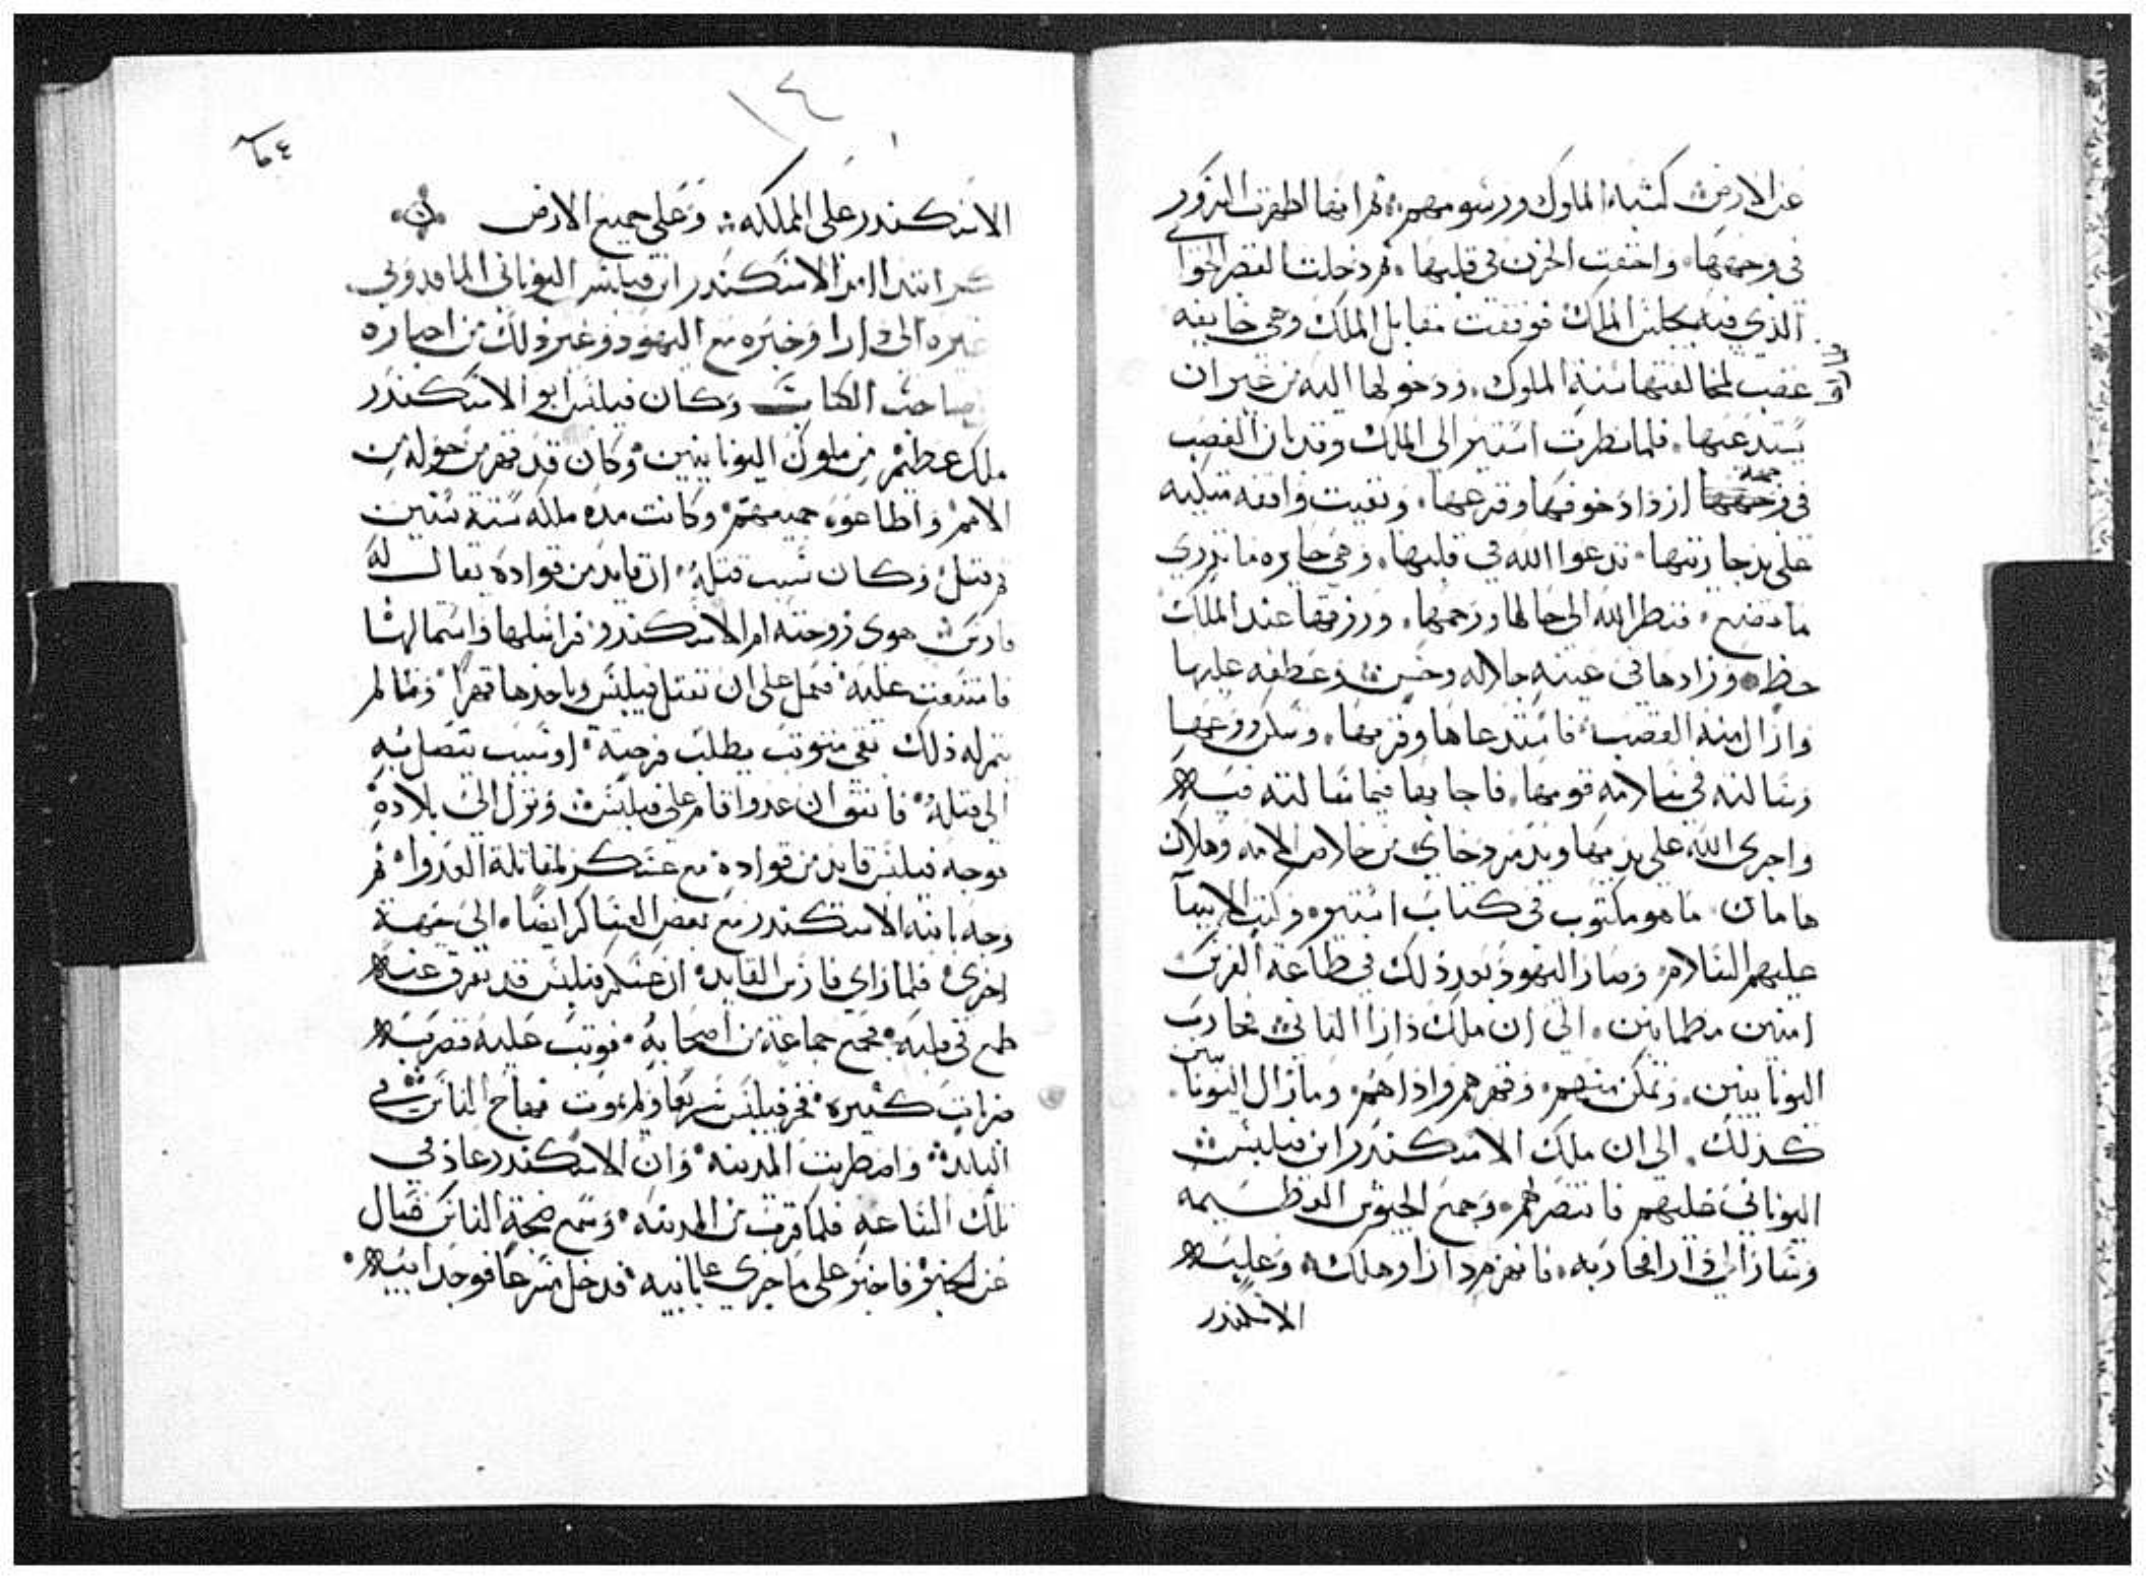 عن الارض كشبه الملوك ورسومهم ثم انها اظهرت السرور
في وجهها واخفت الحزن في قلبها ثم دخلت القصر الجواي
الذي فيه مجلس الملك فوقفت مقابل الملك وهي خايفه
غضب لمخالفتها سنة الملوك ودخولها اليه من غير ان
يستدعيها فلما نظرت استير الي الملك وقد بان الغضب
في وجهه ازداد خوفها وفزعها وبقيت واقفه متكيه
علي يد جاريتها تدعوا الله في قلبها وهي حايره ما تدري
ما تصنع فنظر الله الي حالها ورحمها ورزقها عند الملك
حظ وزادها في عينيه جلاله وحسن وعطفه عليها
وازال منه الغضب فاستدعاها وقربها وسكن روعها
وسالته في سلامة قومها فاجابها فيما سالته فيه
واجري الله علي يديها ويد مردخاي من خلاص الامه وهلاك
هامان ما هو مكتوب في كتاب استير وكتب الانبيا
عليهم السلام وصار اليهود بعد ذلك في طاعة الفرس
امنين مطمانين الي ان ملك دارا الثاني فحارب
اليونانيين وتمكن منهم وقهرهم واذاهم ومازال اليونانيين
كذلك الي ان ملك الاسكندر ابن فيلبس
اليوناني عليهم فانتصر لهم وجمع الجيوش العظيمه
وسار الي دارا فحاربه فانهزم دارا وهلك وغلب
الاسكندر
١٤
الاسكندر علي المملكه وعلي جميع الارض
ابتدا الاسكندر ابن فيلبس اليوناني الماقدوني
الي دارا وخبره مع اليهود وغير ذلك من اخباره
صاحب الكتاب وكان فيلبس ابو الاسكندر
ملك عظيم من ملوك اليونانيين وكان قد قهر من حوله من
الامم واطاعوه جميعهم وكانت مدة ملكه ستة سنين
ثم قتل وكان سبب قتله ان قايد من قواده يقال له
هوي زوجته ام الاسكندر فراسلها واستمالها
فامتنعت عليه فعمل علي ان يقتل فيلبس وياخدها قهرا ولما لم
يتم له ذلك بقي يطلب فرصة او سبب يتصل به
الي قتله فاتفق ان عدوا قام علي فيلبس ونزل الي بلاده
فوجه فيلبس قايد من قواده مع عسكر لمقاتلة العدوا ثم
وجه بابنه الاسكندر مع بعض العساكر ايضا الي جهة
اخري فلما راي القايد ان عسكر فيلبس قد تفرق عنه
طمع في قلبه فجمع جماعة من اصحابه فوثب عليه فضربه
ضربات كثيره فخر فيلبس سريعا ولم يموت فهاج الناس في
البلد واضطربت المدينه وان الاسكندر عاد في
تلك الساعه فلما قرب من المدينه وسمع ضجة الناس فسال
عن الخبر فاخبر علي ما جري علي ابيه فدخل مسرعا فوجد ابيه